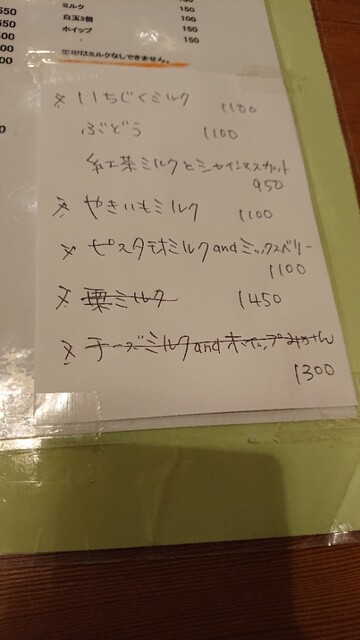 550
ミルク 150
白玉3個 100
ホイップ 150
150
生甲店ミルクなしできません。
※いちじくミルク 1100
ぶどう 1100
紅茶ミルクとシャインマスカット
950
※やきいもミルク 1100
※ピスタチオミルクandミックスベリー
1100
※栗ミルク 1450
※チーズミルクandホイップみかん
1300